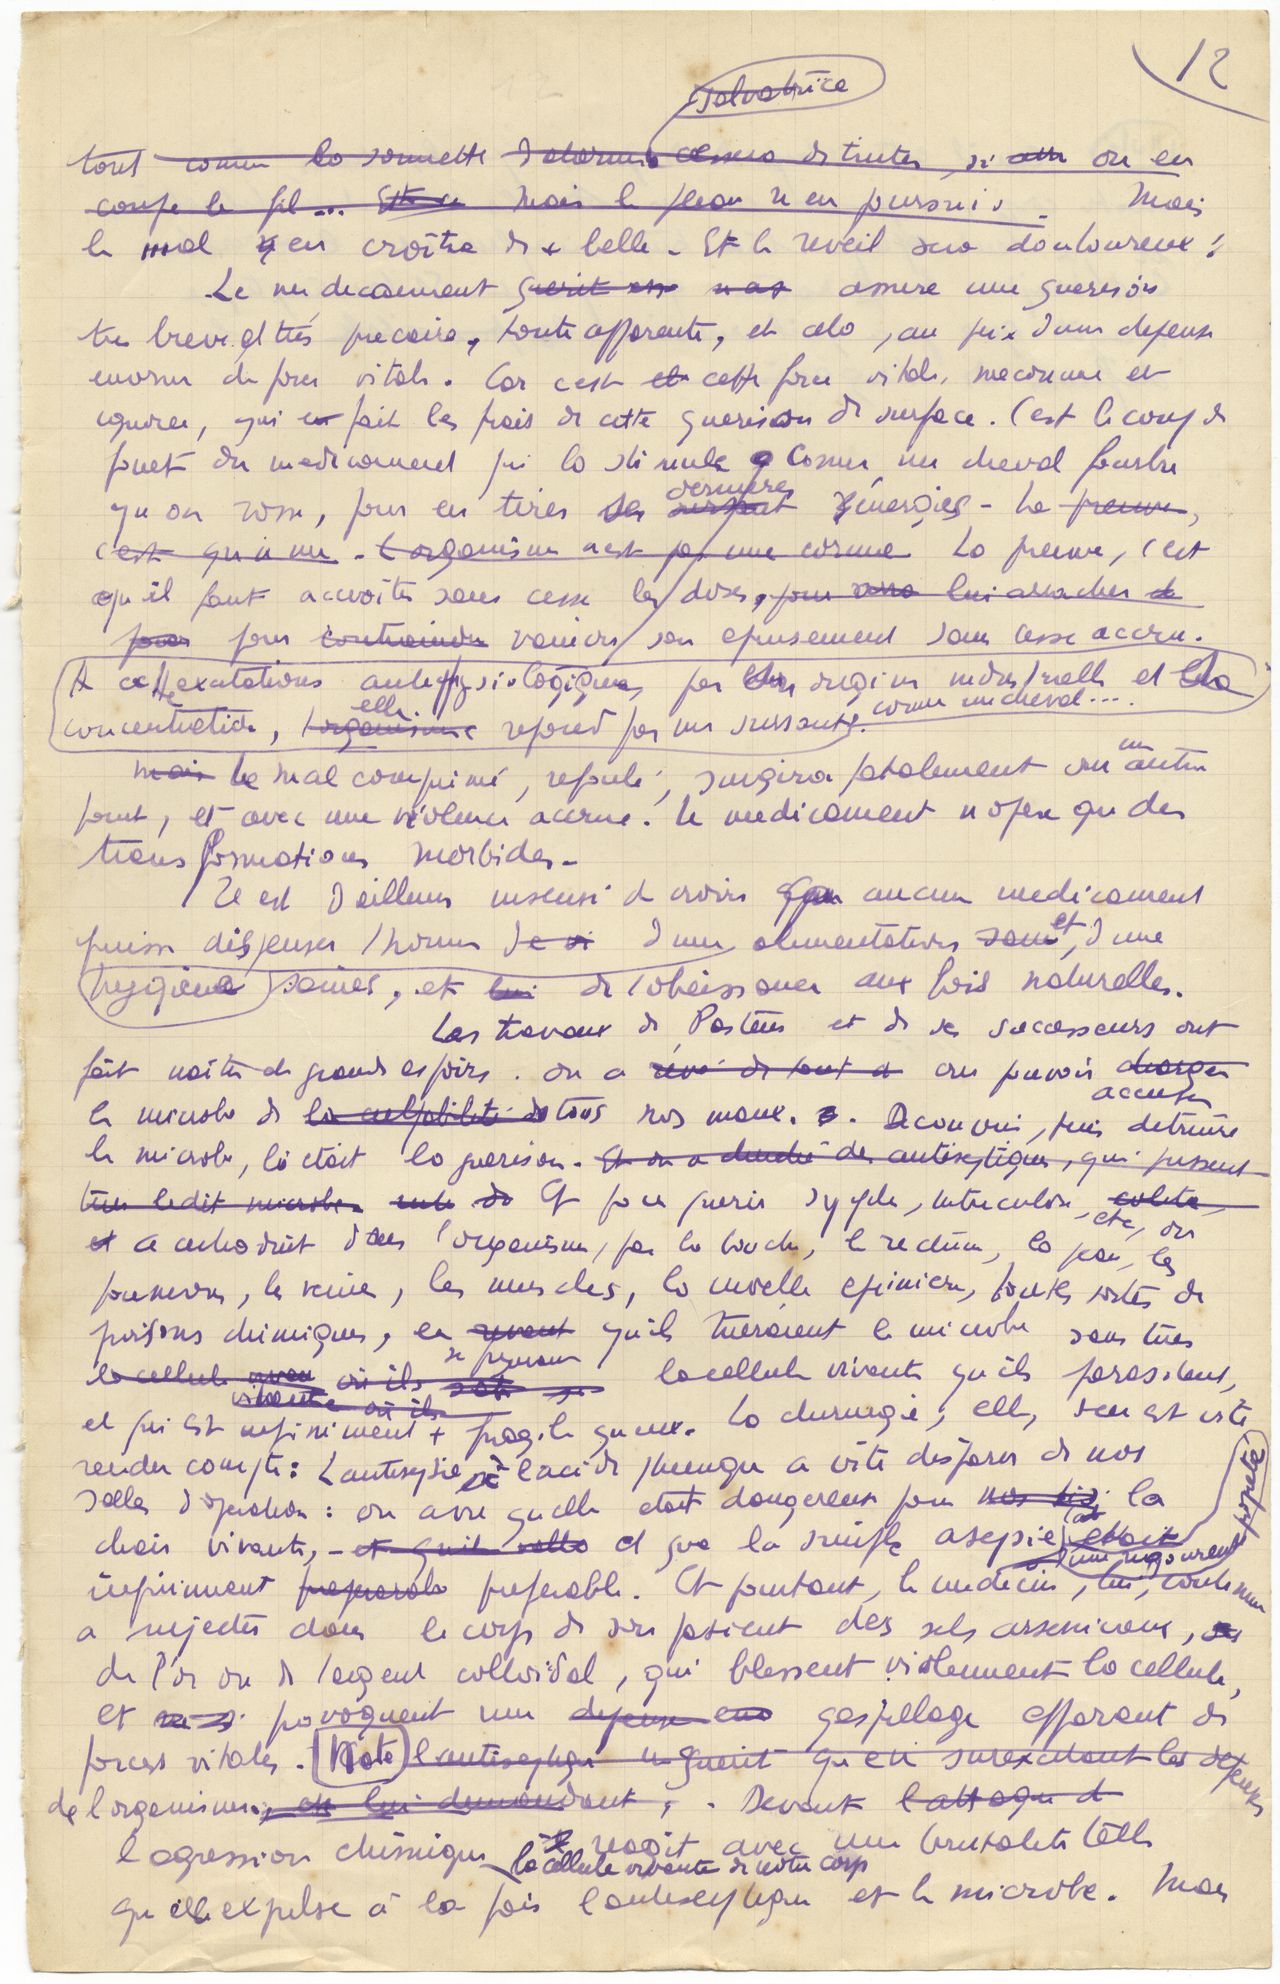 12
salvatrice
tout comme la sonnette d'alarme cessera de tinter, si on en
coupe le fil... Mais le fléau n'en poursuivra. Mais
le mal va en croître de + belle. Et le reveil sera douloureux !
Le medicament guerit assure une guerison
tres breve et très precaire, toute apparente, et cela, au prix d'une depense
enorme de force vitale. Car c'est cette force vitale, meconnue et
ignorée, qui fait les frais de cette guerison de surface. C'est le coup de
fouet du medicament qui la stimule comme un cheval fourbu
dernieres
qu'on rosse, pour en tirer ses sursaut énergies - La preuve,
c'est qu'il ne - l'organisme n'est pas une cornue La preuve, c'est
qu'il faut accroître sans cesse les doses, pour lui arracher
pour pour contraindre vaincre son epuisement sans cesse accru.
A cette excitations antiphysiologiques, par origine industrielle et
elle comme un cheval....
concentration, l'organisme repond par un sursaut.
un
mais le mal comprimé, refoulé, surgira fatalement en autre
point, et avec une violence accrue. Le medicament n'opere que des
transformations morbides -
Il est d'ailleurs insensé de croire aucun medicament
et
puisse dispenser l'homme d'une alimentation d'une
hygiene saines, et de l'obeissance aux lois naturelles.
Les travaux de Pasteur et de ses successeurs ont
fait naître de grands espoirs. On a rêvé de tout cru pouvoir charger
accuser
le microbe de la culpabilité de tous nos maux. Decouvrir, puis detruire
le microbe, là était la guerison. Et on a cherché des antiseptiques, qui pussent
tuer ledit microbe. Et pour guerir syphilis, tuberculose, colite,
etc, on
a introduit dans l'organisme, par la bouche, le rectum, la peau, les
poumons, les veines, les muscles, la moelle epiniere, toutes sortes de
poisons chimiques, en revant qu'ils tueraient le microbe sans tuer
se
la cellule où ils la cellule vivante qu'ils parasitent,
vivante où ils
et qui est infiniment + fragile qu'eux. La chirurgie, elle, s'en est vite
rendu compte : L'antisepsie à l'acide phenique a vite disparu de nos
propreté
salles d'operation : on a vu qu'elle etait dangereuse pour la
chair vivante, et que la simple asepsie etait
d'une rigoureuse
infiniment preferable. Et pourtant, le medecin, lui, continue
a injecter dans le corps de son patient des sels arsenicaux,
de l'or ou de l'argent colloidal, qui blessent violemment la cellule,
et provoquent un depense gaspillage effarant de
forces vitales. Note l'antiseptique ne guerit qu'en surexcitant les defenses
de l'organisme, en lui demandant, . Devant l'attaque d
l'agression chimique réagit avec une brutalité telle
la cellule vivante de notre corps
qu'elle expulse à la fois l'antiseptique et le microbe. Mais